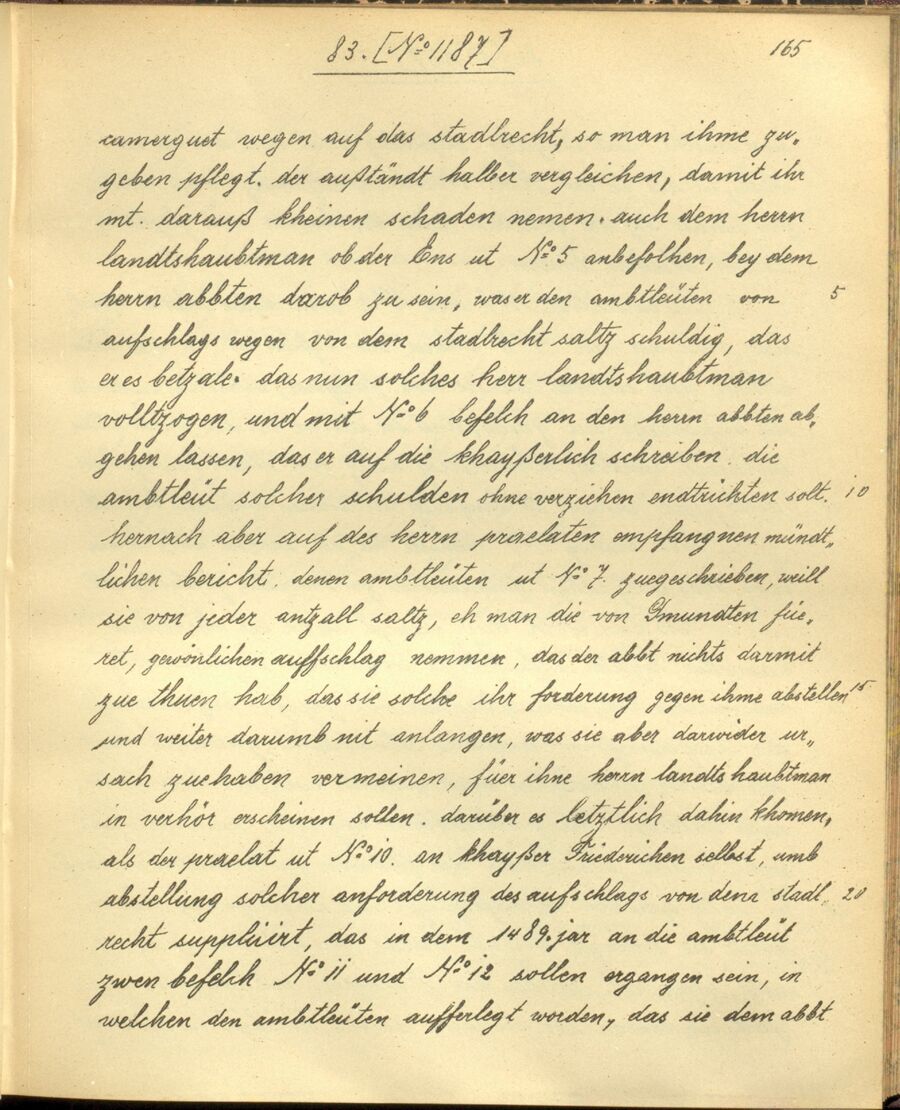 83. [No 1187]
165
camerguet wegen auf das stadlrecht, so man ihme zu„
geben pflegt. der außtändt halber vergleichen, damit ihr
mt. darauß kheinen schaden nemen. auch dem herrn
landtshaubtman ob der Ens ut No 5 anbefolhen, bey dem
herrn abbten darob zu sein, was er den ambtleüten von 5
aufschlags wegen von dem stadlrecht saltz schuldig, das
er es betzale. das nun solches herr landtshaubtman
volltzogen, und mit No 6 befelch an den herrn abbten ab„
gehen lassen, das er auf die khayßerlich schreiben die
ambtleüt solcher schulden ohne verziehen endtrichten solt. 10
hernach aber auf des herrn praelaten empfangnen mündt„
lichen bericht, denen ambtleüten ut No 7. zuegeschrieben, weill
sie von jeder antzall saltz, eh man die von Gmundten füe„
ret, gewönlichen auffschlag nemmen, das der abbt nichts darmit
zue thuen hab, das sie solche ihr forderung gegen ihme abstellen 15
und weiter darumb nit anlangen, was sie aber darwider ur„
sach zuehaben vermeinen, füer ihne herrn landtshaubtman
in verhör erscheinen sollen. darüber es letztlich dahin khomen,
als der praelat ut No 10. an khayßer Friederichen selbst, umb
abstellung solcher anforderung des aufschlags von dem stadl„ 20
recht suppliiirt, das in dem 1489. jar an die ambtleüt
zwen befelch No 11 und No 12 sollen ergangen sein, in
welchen den ambtleüten aufferlegt worden, das sie dem abbt